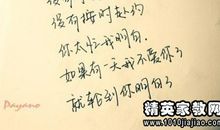 没有按时赴约
你太忙我明白
如果有一天我不爱你了
就轮到你明白了
Payano
精英家教网
www.1010jiajiao.com